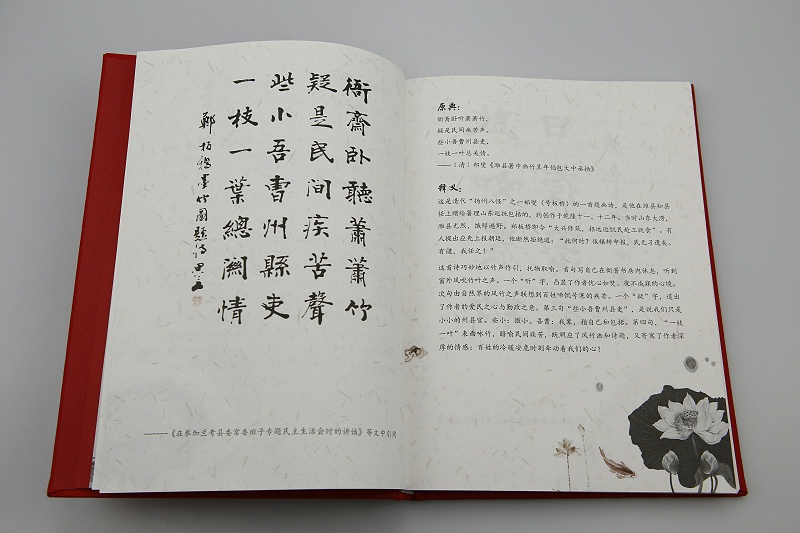 衙齋卧聽蕭蕭竹
疑是民間疾苦聲
些小吾曹州縣吏
一枝一葉總關情
——《在参加兰考县委常委班子专题民主生活会时的讲话》等文中引用
原典：
衙斋卧听萧萧竹，
疑是民间疾苦声。
些小吾曹州县吏，
一枝一叶总关情。
——（清）郑燮《潍县署中画竹呈年伯包大中丞括》
释义：
这是清代“扬州八怪”之一郑燮（号板桥）的一首题画诗，是他在潍县知县
任上赠给署理山东巡抚包括的，约创作于乾隆十一、十二年。当时山东大荒，
潍县尤烈，饿殍遍野。郑板桥即令“大兴修筑，招远近饥民赴工就食”。有
人提出应先上报朝廷，他断然拒绝道：“此何时？俟辗转申报，民无孑遗矣。
有谴，我任之！”
这首诗巧妙地以竹声作引，托物取喻。首句写自己在衙署书房内休息，听到
窗外风吹竹叶之声。一个“听”字，凸显了作者忧心如焚、夜不成寐的心境。
次句由自然界的风竹之声联想到百姓啼饥号寒的疾苦。一个“疑”字，道出
了作者的爱民之心与勤政之意。第三句“些小吾曹州县吏”，是说我们只是
小小的州县官。些小：微小。吾曹：我辈，指自己和包括。第四句，“一枝
一叶”表面咏竹，暗喻民间疾苦，既照应了风竹画和诗题，又寄寓了作者深
厚的情感：百姓的冷暖安危时刻牵动着我们的心！